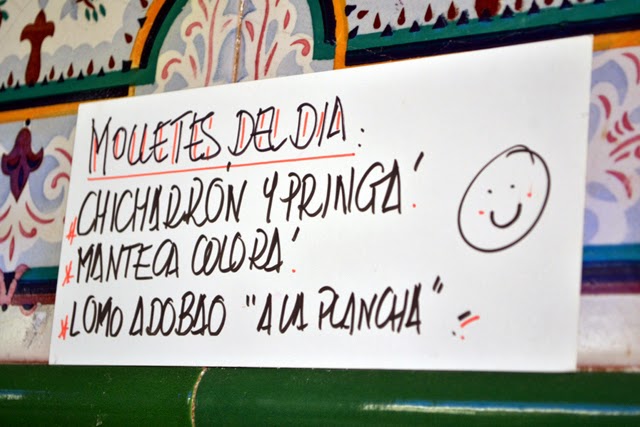 MOLLETES DEL DIA:
*CHICHARRÓN Y PRINGÁ.
*MANTECA COLORÁ.
*LOMO ADOBAO "A LA PLANCHA"